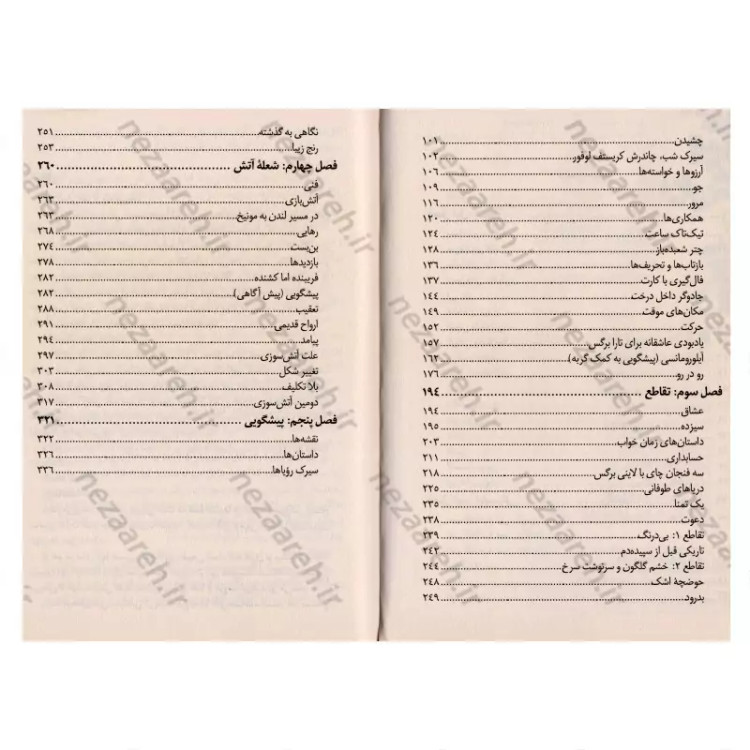 چشیدن ۱۰۱
سیرک شب، چاندرش کریستف لوفور ۱۰۲
آرزوها و خواسته‌ها ۱۰۶
جو ۱۰۹
مرور ۱۱۶
همکاری‌ها ۱۲۰
تیک‌تاک ساعت ۱۲۴
چتر شعبده‌باز ۱۲۸
بازتاب‌ها و تحریف‌ها ۱۳۶
فال‌گیری با کارت ۱۳۷
جادوگر داخل درخت ۱۴۴
مکان‌های موقت ۱۴۹
حرکت ۱۵۲
یادبودی عاشقانه برای تارا برگس ۱۵۷
آیلورومانسی (پیشگویی به کمک گربه) ۱۶۲
رو در رو ۱۷۶
فصل سوم: تقاطع ۱۹۴
عشاق ۱۹۴
سیزده ۱۹۵
داستان‌های زمان خواب ۲۰۳
حسابداری ۲۱۱
سه فنجان چای با لاینی برگس ۲۱۸
دریاهای طوفانی ۲۲۵
یک تمنا ۲۳۵
دعوت ۲۳۸
تقاطع ۱: بی‌درنگ ۲۳۹
تاریکی قبل از سپیده‌دم ۲۴۲
تقاطع ۲: خشم گلگون و سرنوشت سرخ ۲۴۴
حوضچهٔ اشک ۲۴۸
بدرود ۲۴۹
نگاهی به گذشته ۲۵۱
رنج زیبا ۲۵۳
فصل چهارم: شعلهٔ آتش ۲۶۰
فنی ۲۶۰
آتش‌بازی ۲۶۳
در مسیر لندن به مونیخ ۲۶۳
رهایی ۲۶۸
بن‌بست ۲۷۴
بازدیدها ۲۷۸
فریبنده اما کشنده ۲۸۲
پیشگویی (پیش آگاهی) ۲۸۲
تعقیب ۲۸۸
ارواح قدیمی ۲۹۱
پیامد ۲۹۴
علت آتش‌سوزی ۲۹۷
تغییر شکل ۳۰۳
بلا تکلیف ۳۰۸
دومین آتش‌سوزی ۳۱۷
فصل پنجم: پیشگویی ۳۲۱
نقشه‌ها ۳۲۲
داستان‌ها ۳۲۶
سیرک رؤیاها ۳۳۶
nezaareh.ir